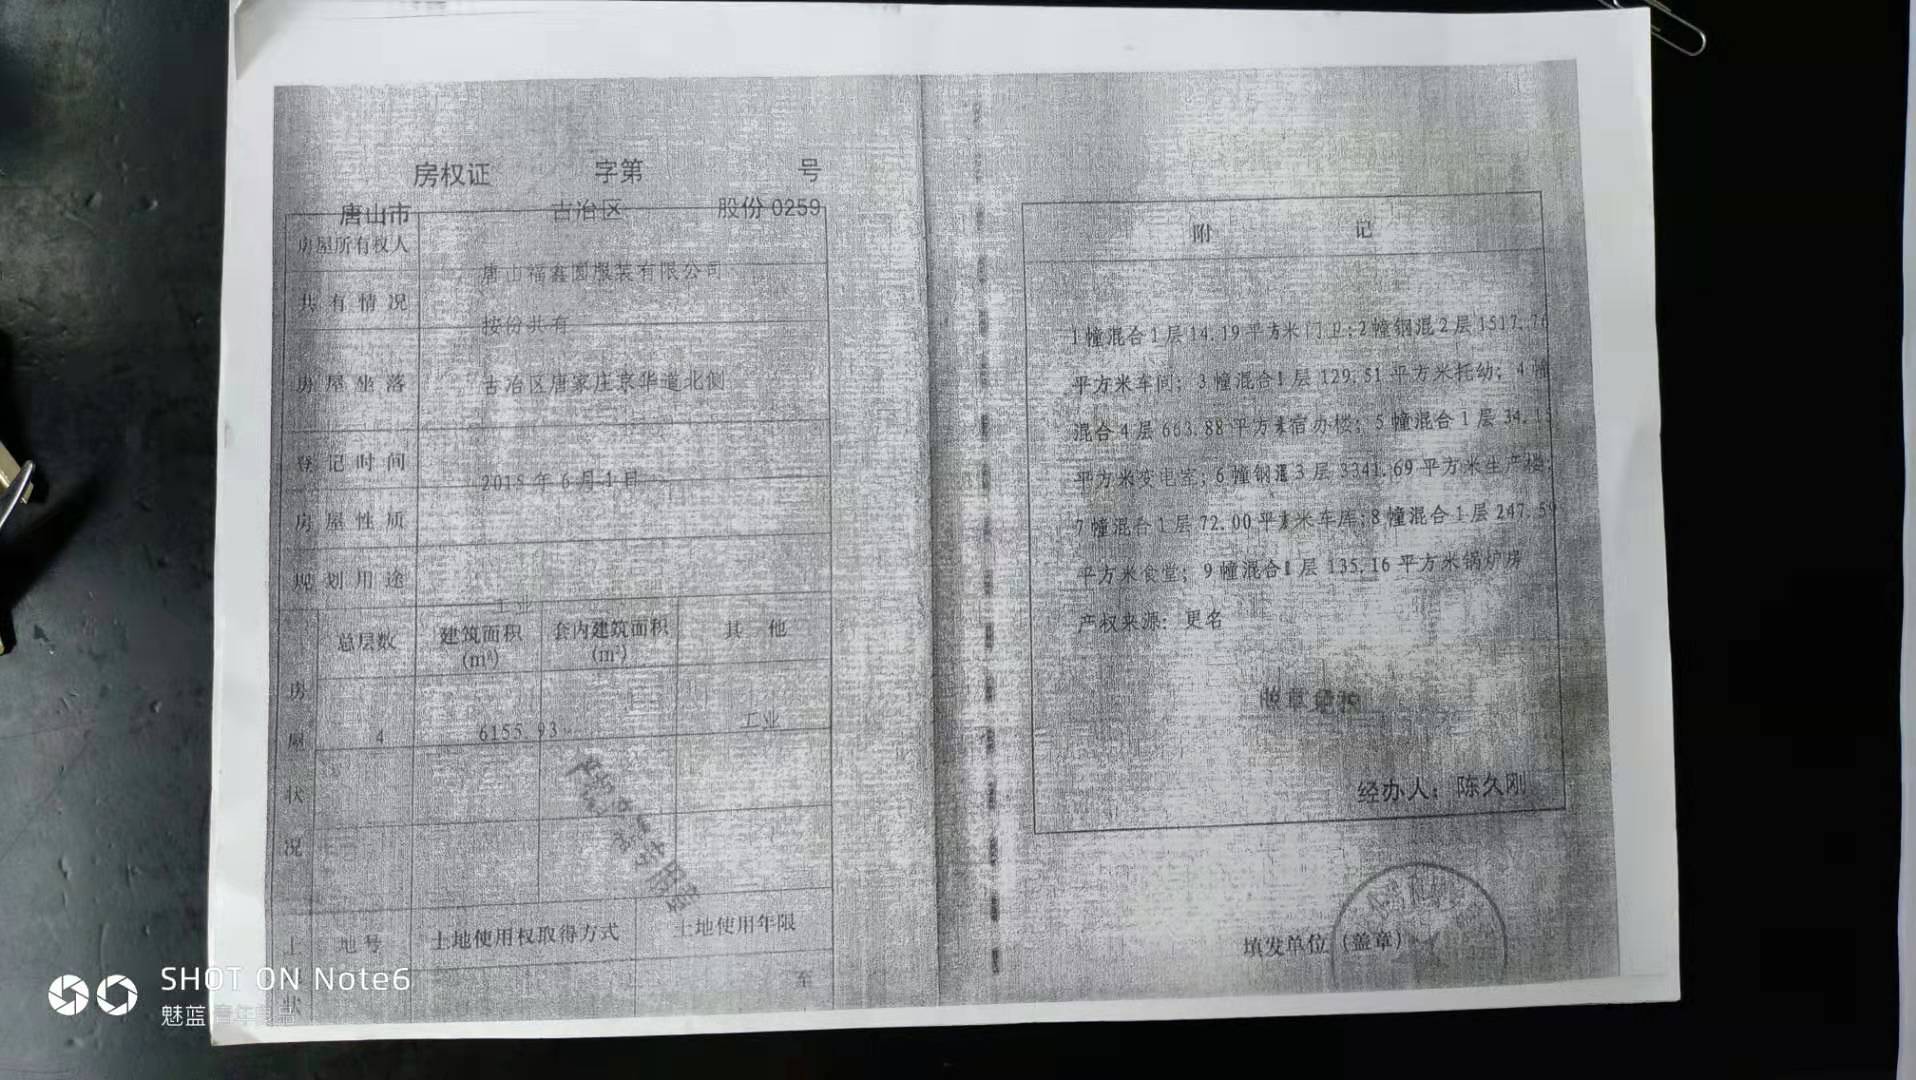 房权证 字第 号
唐山市 古冶区 股份 0259
房屋所有权人
唐山福鑫圆服装有限公司
共有情况
按份共有
房屋坐落 古冶区唐家庄京华道北侧
登记时间
2015年6月1日
房屋性质
规划用途
工业
房屋状况
总层数 建筑面积 套内建筑面积 其 他
(m²) (m²)
4 6155.93 工业
土 地号 土地使用权取得方式 土地使用年限
至
状
附 记
1幢混合1层14.19平方米门卫;2幢钢混2层1517.76
平方米车间;3幢混合1层129.51平方米托幼;4幢
混合4层663.88平方米宿办楼;5幢混合1层34.15
平方米变电室;6幢钢混3层3341.69平方米生产楼;
7幢混合1层72.00平方米车库;8幢混合1层247.59
平方米食堂;9幢混合1层135.16平方米锅炉房
产权来源:更名
经办人:陈久刚
填发单位(盖章)
SHOT ON Note6
魅蓝 青年良品